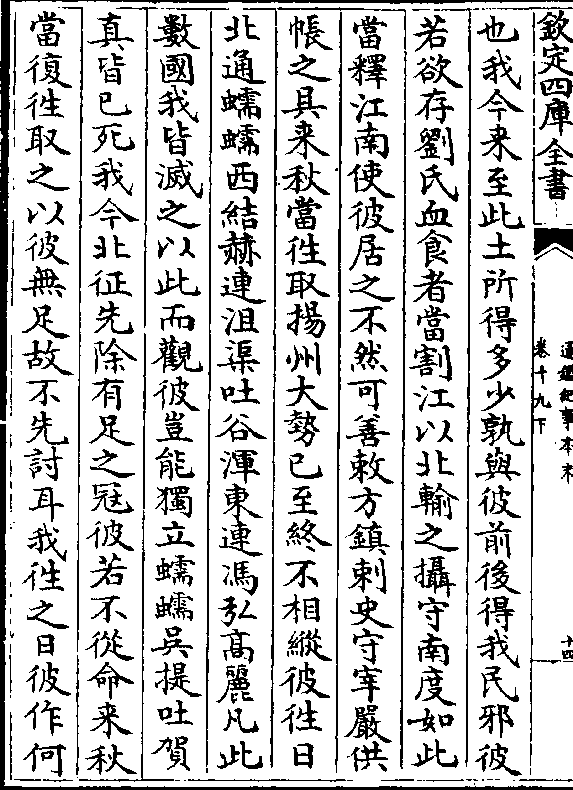 欽定四庫全書
通鑑紀事本末
卷十九下
十四
也我今来至此土所得多少孰與彼前後得我民邪彼
若欲存劉氏血食者當割江以北輸之攝守南度如此
當釋江南使彼居之不然可善敕方鎮刺史守宰嚴供
帳之具来秋當往取揚州大勢已至終不相縱彼往日
北通蠕蠕西結赫連沮渠吐谷渾東連馮弘高麗凡此
數國我皆滅之以此而觀彼豈能獨立蠕蠕吳提吐賀
真皆已死我今北征先除有足之冦彼若不從命来秋
當復往取之以彼無足故不先討耳我往之日彼作何